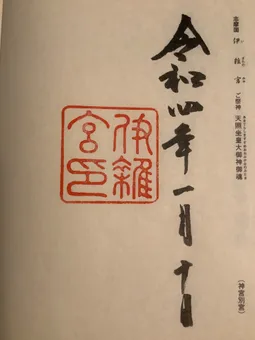 志摩國 伊雜宮 ご祭神 天照坐皇大御神御魂
(神宮別宮)
令和四年一月十日
伊雜
宮印